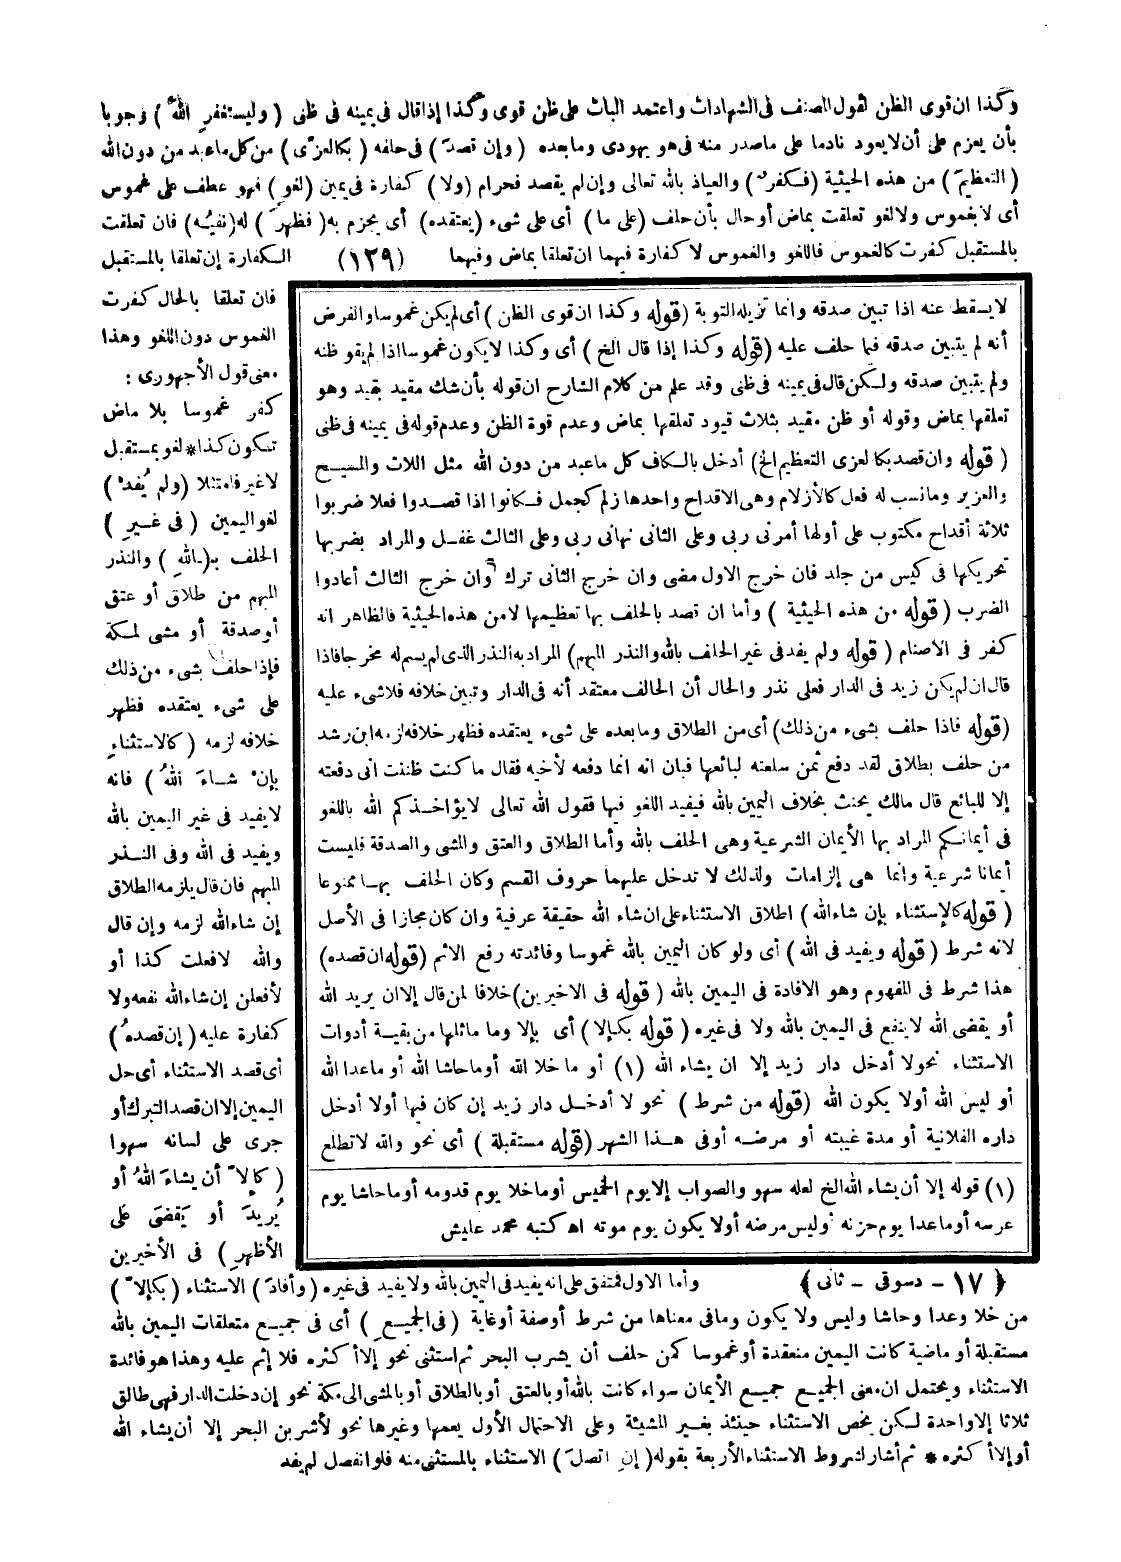 وكذا ان قوى الظن لقول المصنف فى الشهادات واعتمد البات على ظن قوى وكذا إذا قال فى يمينه فى ظنى ( وليستغفرِ اللهَ ) وجوبا
بأن يعزم على أن لا يعود نادما على ماصدر منه فى هو يهودى ومابعده ( وإن قصدَ ) فى حلفه ( بكالعزّى ) من كل ما عبد من دون الله
( التعظيمَ ) من هذه الحيثية ( فكفرٌ ) والعياذ بالله تعالى وإن لم يقصد فحرام (ولا) كفارة فى يمين (لغوٍ) فهو عطف على غموس
أى لا بغموس ولا لغو تعلقت بماض أو حال بأن حلف (على ما) أى على شىء (يعتقده) أى يجزم به ( فظهرَ ) له (نفيُه) فان تعلقت
بالمستقبل كفرت كالغموس فاللغو والغموس لا كفارة فيهما ان تعلقا بماض وفيهما (١٢٩) الكفارة إن تعلقا بالمستقبل
فان تعلقا بالحال كفرت
الغموس دون اللغو وهذا
معنى قول الأجهورى :
كفر غموسا بلا ماض
تكون كذا * لغو بمستقبل
لا غير فامتثلا (ولم يُفدْ )
لغو اليمين ( فى غيرِ )
الحلف بـ(ـاللهِ ) والنذر
المبهم من طلاق أو عتق
أو صدقة أو مشى لمكة
فإذا حلف بشىء من ذلك
على شىء يعتقده فظهر
خلافه لزمه ( كالاستثناءِ
بإنْ شاءَ اللهُ ) فانه
لا يفيد فى غير اليمين بالله
ويفيد فى الله وفى النذر
المبهم فان قال يلزمه الطلاق
إن شاء الله لزمه وإن قال
والله لا فعلت كذا أو
لأفعلن إن شاء الله نفعه ولا
كفارة عليه ( إن قصدهُ )
أى قصد الاستثناء أى حل
اليمين إلا ان قصد التبرك أو
جرى على لسانه سهوا
( كإلاّ أن يشاءَ اللهُ أو
يُريدَ أو يَقضىَ على
الأظهرِ ) فى الأخيرين
لا يسقط عنه اذا تبين صدقه وانما تزيله التوبة (قوله وكذا ان قوى الظن ) أى لم يكن غموسا والفرض
أنه لم يتبين صدقه فيما حلف عليه (قوله وكذا إذا قال الخ ) أى وكذا لا يكون غموسا اذا لم يقو ظنه
ولم يتبين صدقه ولكن قال فى يمينه فى ظنى وقد علم من كلام الشارح ان قوله بأن شك مقيد بقيد وهو
تعلقها بماض وقوله أو ظن مقيد بثلاث قيود تعلقها بماض وعدم قوة الظن وعدم قوله فى يمينه فى ظنى
( قوله وان قصد بكالعزى التعظيم الخ) أدخل بالكاف كل ماعبد من دون الله مثل اللات والمسيح
والعزير ومانسب له فعل كالأزلام وهى الاقداح واحدها زلم كجمل فكانوا اذا قصدوا فعلا ضربوا
ثلاثة أقداح مكتوب على أولها أمرنى ربى وعلى الثانى نهانى ربى وعلى الثالث غفل والمراد بضربها
تحريكها فى كيس من جلد فان خرج الاول مضى وان خرج الثانى ترك وان خرج الثالث أعادوا
الضرب ( قوله من هذه الحيثية ) وأما ان قصد بالحلف بها تعظيمها لا من هذه الحيثية فالظاهر انه
كفر فى الاصنام ( قوله ولم يفد فى غير الحلف بالله والنذر المبهم) المراد به النذر الذى لم يسم له مخرجا فاذا
قال ان لم يكن زيد فى الدار فعلى نذر والحال أن الحالف معتقد أنه فى الدار وتبين خلافه فلا شىء عليه
(قوله فاذا حلف بشىء من ذلك) أى من الطلاق ومابعده على شىء يعتقده فظهر خلافه لزمه ابن رشد
من حلف بطلاق لقد دفع ثمن سلعته لبائعها فبان انه انما دفعه لأخيه فقال ما كنت ظننت انى دفعته
إلا للبائع قال مالك يحنث بخلاف اليمين بالله فيفيد اللغو فيها فقول الله تعالى لا يؤاخذكم الله باللغو
فى أيمانكم المراد بها الأيمان الشرعية وهى الحلف بالله وأما الطلاق والعتق والمشى والصدقة فليست
أيمانا شرعية وانما هى إلزامات ولذلك لا تدخل عليهما حروف القسم وكان الحلف بها ممنوعا
( قوله كالإستثناء بإن شاء الله ) اطلاق الاستثناء على ان شاء الله حقيقة عرفية وان كان مجازا فى الأصل
لانه شرط ( قوله ويفيد فى الله ) أى ولو كان اليمين بالله غموسا وفائدته رفع الاثم (قوله ان قصده)
هذا شرط فى المفهوم وهو الافادة فى اليمين بالله ( قوله فى الاخيرين) خلافا لمن قال إلا ان يريد الله
أو يقضى الله لا ينفع فى اليمين بالله ولا فى غيره ( قوله بكإلا ) أى بإلا وما ماثلها من بقية أدوات
الاستثناء نحو لا أدخل دار زيد إلا ان يشاء الله (١) أو ما خلا الله أو ماحاشا الله أو ماعدا الله
أو ليس الله أو لا يكون الله (قوله من شرط ) نحو لا أدخل دار زيد إن كان فيها أو لا أدخل
داره الفلانية أو مدة غيبته أو مرضه أو فى هذا الشهر (قوله مستقبلة ) أى نحو والله لا تطلع
(١) قوله إلا أن يشاء الله الخ لعله سهو والصواب إلا يوم الخميس أو ماخلا يوم قدومه أو ماحاشا يوم
عرسه أو ماعدا يوم حزنه أو ليس مرضه أو لا يكون يوم موته اه كتبه محمد عليش
وأما الاول فمتفق على انه يفيد فى اليمين بالله ولا يفيد فى غيره ( وأفادَ ) الاستثناء ( بكإلاّ ) ﴿ ١٧ - دسوقى - ثانى ﴾
من خلا وعدا وحاشا وليس ولا يكون ومافى معناها من شرط أو صفة أو غاية ( فى الجميعِ ) أى فى جميع متعلقات اليمين بالله
مستقبلة أو ماضية كانت اليمين منعقدة أو غموسا كمن حلف أن يشرب البحر ثم استثنى نحو إلا أكثره فلا إثم عليه وهذا هو فائدة
الاستثناء ويحتمل ان معنى الجميع جميع الأيمان سواء كانت بالله أو بالعتق أو بالطلاق أو بالمشى الى مكة نحو إن دخلت الدار فهى طالق
ثلاثا إلا واحدة لكن يخص الاستثناء حينئذ بغير المشيئة وعلى الاحتمال الأول يعمها وغيرها نحو لأشربن البحر إلا أن يشاء الله
أو إلا أكثره * ثم أشار لشروط الاستثناء الأربعة بقوله ( إنِ اتصلَ ) الاستثناء بالمستثنى منه فلو انفصل لم يفد